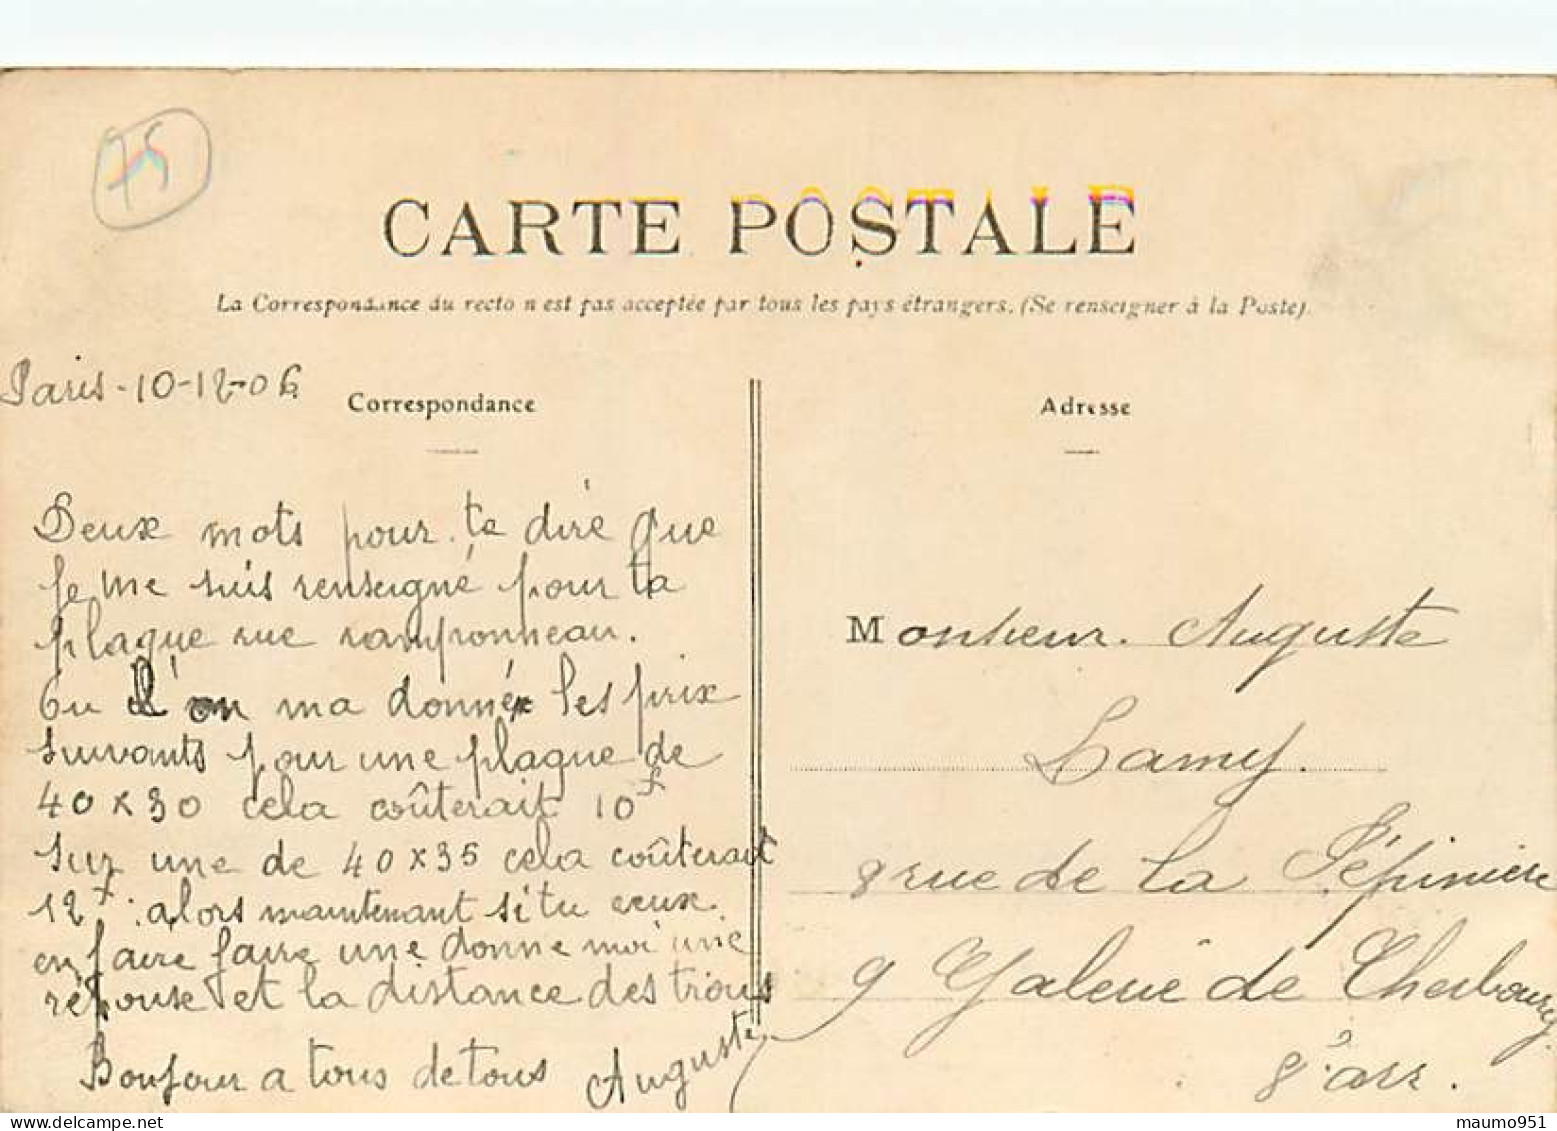 75
CARTE POSTALE
La Correspondance du recto n'est pas acceptée par tous les pays étrangers. (Se renseigner à la Poste).
Paris-10-12-06
Correspondance
Deux mots pour te dire que
je me suis renseigné pour ta
plaque rue ramponneau.
Ou l'on ma donné les prix
suivants pour une plaque de
40x30 cela coûterait 10f
sur une de 40x35 cela coûterait
12f: alors maintenant si tu veux
en faire faire une donne moi une
réponse et la distance des trous
Bonjour a tous de tous Auguste
Adresse
Monsieur. Auguste
Lamy.
8 rue de la Pépinière
9 Galerie de Cherbourg
8e arr.
maumo951